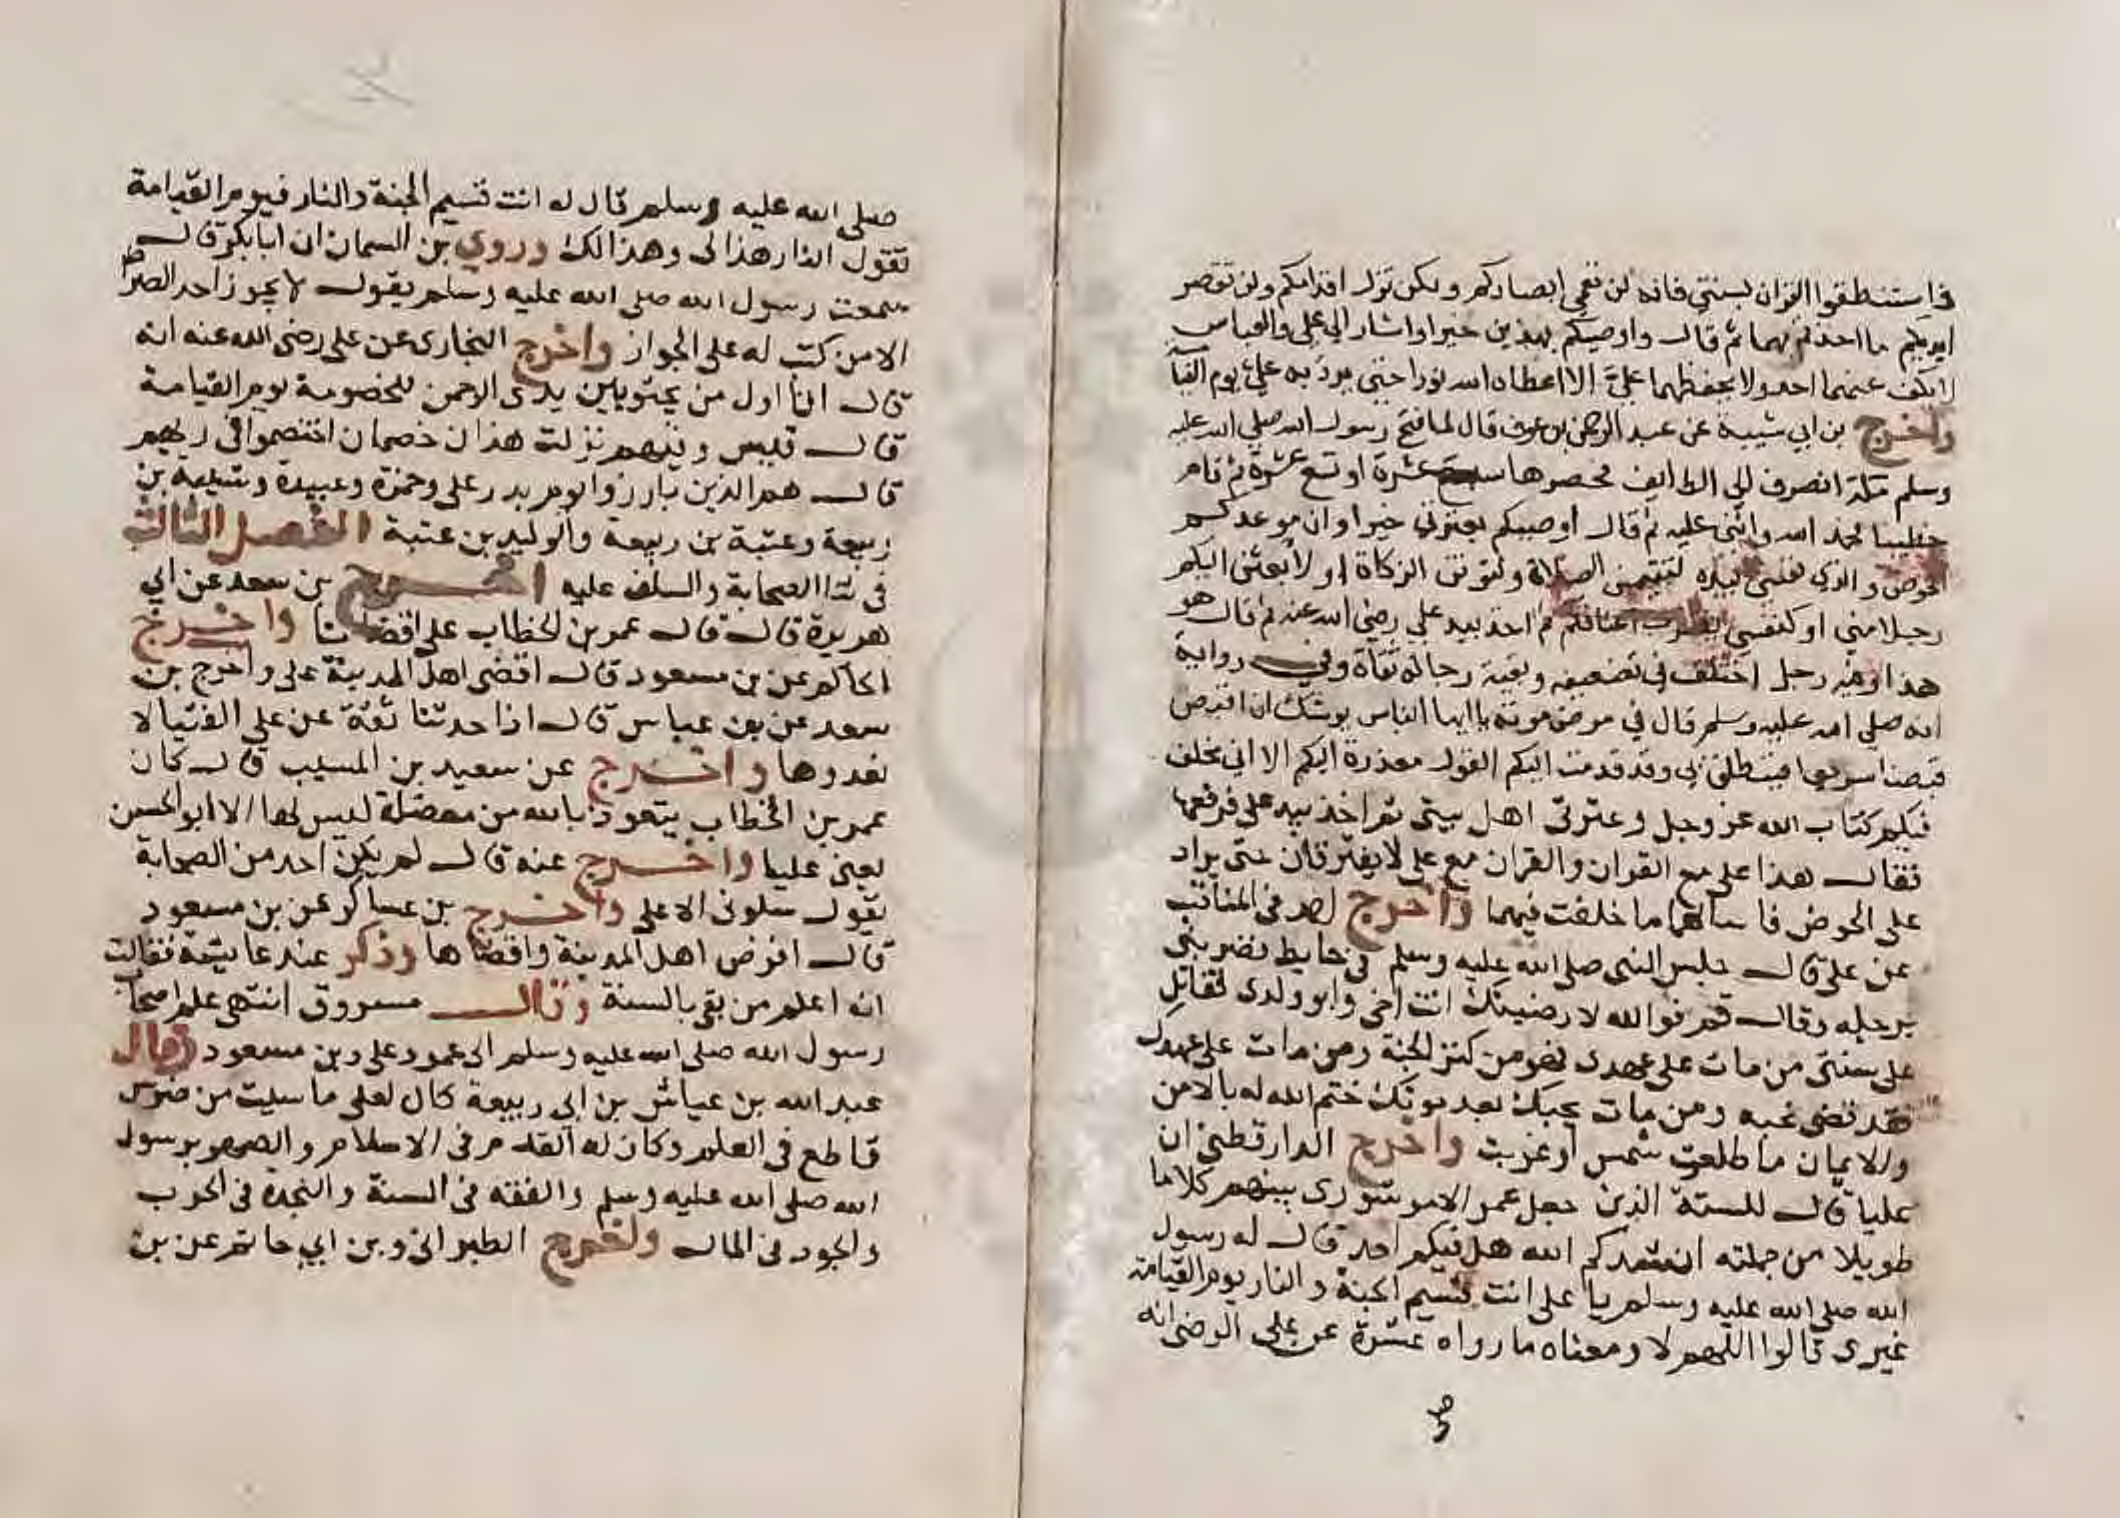 فاستنطقوا القران بسنتي فانه لن تعمى ابصاركم ولكن تزل اقدامكم ولن تقصر
ايديكم ما اخذتم بهما ثم قال واوصيكم بهذين خيرا واشار الي علي والعباس
لا يكف عنهما احد ولا يحفظهما عليّ الا اعطاه الله نورا حتي يرد به عليّ يوم القيامة
واخرج بن ابي شيبة عن عبد الرحمن بن عوف قال لما فتح رسول الله صلي الله عليه
وسلم مكة انصرف الي الطايف فحصرها سبع عشرة او تسع عشرة ثم قام
خطيبا فحمد الله واثنى عليه ثم قال اوصيكم بعترتي خيرا وان موعدكم
الحوض والذي نفسي بيده لتقيمن الصلاة ولتوتن الزكاة او لابعثن اليكم
رجلا مني او كنفسي يضرب اعناقكم ثم اخذ بيد علي رضي الله عنه ثم قال هو
هذا وفيه رجل اختلف في تضعيفه وبقية رجاله ثقاة وفي رواية
انه صلى الله عليه وسلم قال في مرض موته يا ايها الناس يوشك ان اقبض
قبضا سريعا فينطلق بي وقد قدمت اليكم القول معذرة اليكم الا اني مخلف
فيكم كتاب الله عز وجل وعترتى اهل بيتى ثم اخذ بيد على فرفعها
فقال هذا على مع القران والقران مع على لا يفترقان حتى يراد
على الحوض فاسالهما ما خلفت فيهما واخرج احمد فى المناقب
عن على قال جلس النبى صلى الله عليه وسلم فى حايط فضربنى
برجله وقال قم فوالله لارضينك انت اخى وابو ولدى تقاتل
على سنتى من مات على عهدى فهو من كنز الجنة ومن مات على عهدك
فقد قضى نحبه ومن مات يحبك بعد موتك ختم الله له بالامن
والايمان ما طلعت شمس او غربت واخرج الدارقطنى ان
عليا قال للستة الذين جعل عمر الامر شورى بينهم كلاما
طويلا من جملته انشدكم الله هل فيكم احد قال له رسول
الله صلى الله عليه وسلم يا على انت قسيم الجنة والنار يوم القيامة
غيرى قالوا اللهم لا ومعناه ما رواه عنترة عن على الرضى انه
صلى الله عليه وسلم قال له انت قسيم الجنة والنار فيوم القيامة
تقول النار هذا لى وهذا لك وروي بن السمان ان ابا بكر قال
سمعت رسول الله صلى الله عليه وسلم يقول لا يجوز احد الصراط
الا من كتب له على الجواز واخرج البخارى عن على رضى الله عنه انه
قال انا اول من يجثو بين يدى الرحمن للخصومة يوم القيامة
قال قيس وفيهم نزلت هذان خصمان اختصموا فى ربهم
قال هم الذين بارزوا يوم بدر على وحمزة وعبيدة وشيبة بن
ربيعة وعتبة بن ربيعة والوليد بن عتبة الفصل الثالث
فى ثنا الصحابة والسلف عليه اخرج بن سعد عن ابي
هريرة قال قال عمر بن الخطاب على اقضانا واخرج
الحاكم عن بن مسعود قال اقضى اهل المدينة على واخرج بن
سعد عن بن عباس قال اذا حدثنا ثقة عن على الفتيا لا
نعدوها واخرج عن سعيد بن المسيب قال كان
عمر بن الخطاب يتعوذ بالله من معضلة ليس لها الا ابو الحسن
يعنى عليا واخرج عنه قال لم يكن احد من الصحابة
يقول سلونى الا على واخرج بن عساكر عن بن مسعود
قال افرض اهل المدينة واقضاها وذكر عند عايشة فقالت
انه اعلم من بقى بالسنة وقال مسروق انتهى علم اصحاب
رسول الله صلى الله عليه وسلم الى عمر وعلى وبن مسعود وقال
عبد الله بن عياش بن ابى ربيعة كان لعلى ما شيت من ضرس
قاطع فى العلم وكان له القدم فى الاسلام والصهر برسول
الله صلى الله عليه وسلم والفقه فى السنة والنجدة فى الحرب
والجود فى المال واخرج الطبرانى وبن ابي حاتم عن بن